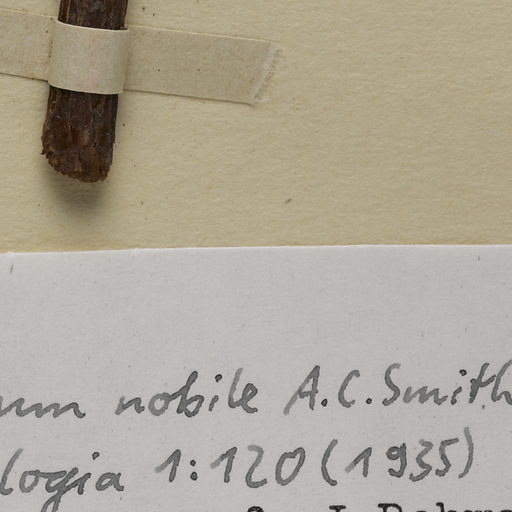 um nobile A.C.Smith
logia 1:120 (1935)